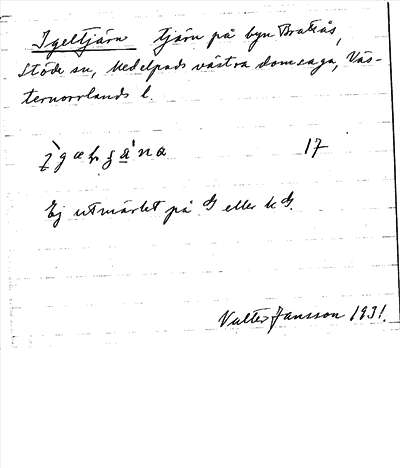 Igeltjärn tjärn på byn Bratås,
Stöde sn, Medelpads västra domsaga, Väs-
ternorrlands l.
17
Ej utmärkt på G eller k G.
Valter Jansson 1931.